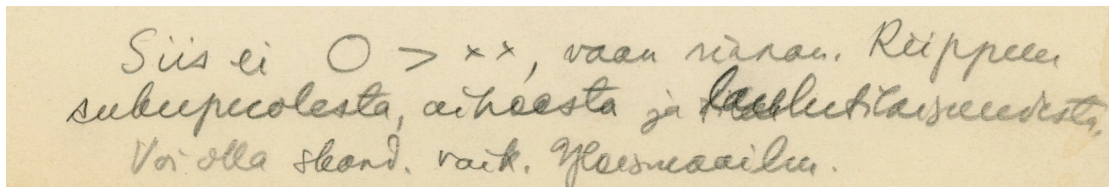 Siis ei O > ××, vaan rinnan. Riippuu
sukupuolesta, aiheesta ja laulutilaisuudesta.
Voi olla skand. vaik. Yleismaailm.